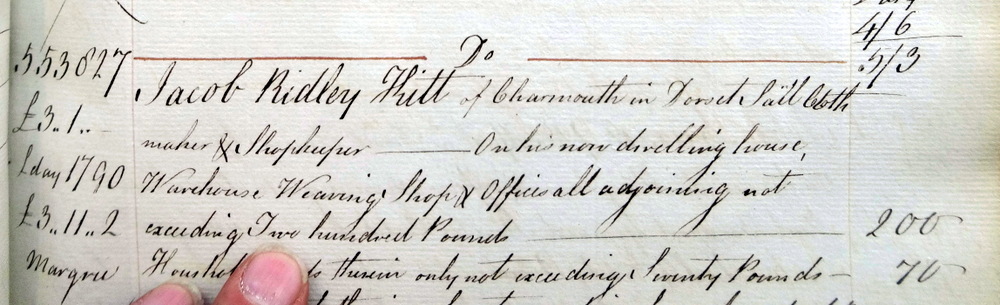 4/6
Do
553827
5/3
Jacob Ridley Kitt of Charmouth in Dorset Sail Cloth
£3..1..-
maker & Shopkeeper — On his now dwelling house,
Lday 1790
Warehouse Weaving Shop & Offices all adjoining not
£3..11..2
exceeding Two hundred Pounds — 200
Margre
therein only not exceeding Seventy Pounds — 70